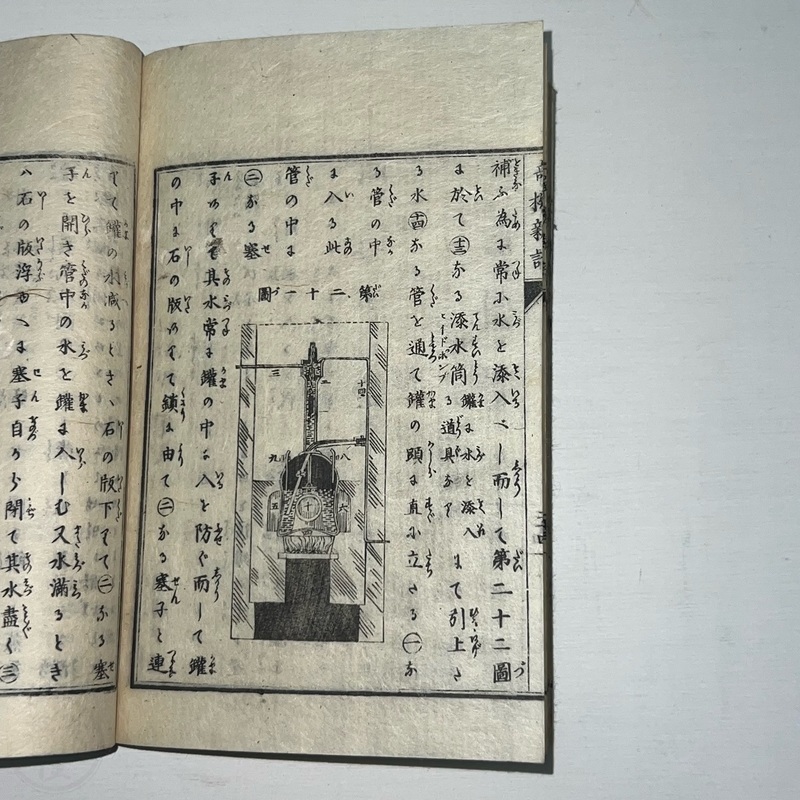 奇機新話
補ふ為に常に水を添入へし而して第二十二圖
に於て㊉㊂なる添水筒 ヒードポンプ 罐に水を添入る道具なり にて引上た
る水㊉㊃なる管を通て罐の頭に直に立たる㊀な
る管の中
に入る此
管の中に
㊁なる塞
第二十一圖
一
二
三
十四
九
八
五
十
六
子ありて其水常に罐の中に入を防ぐ而して罐
の中に石の版ありて鎖に由て㊁なる塞子と連
りて罐の水減るときハ石の版下りて㊁なる塞
子を開き管中の水を罐に入しむ又水満るとき
ハ石の版浮ゆへに塞子自から閉て其水盡く㊂